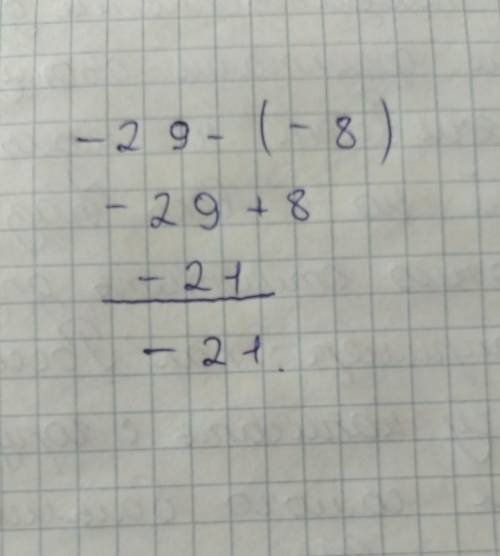 -29-(-8)
-29+8
-21
-21.